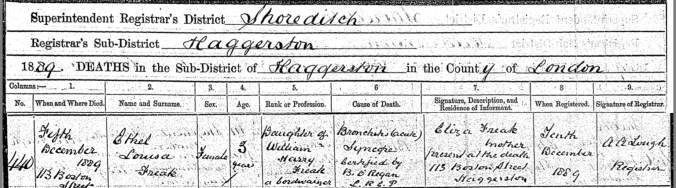 Superintendent Registrar's District Shoreditch
Registrar's Sub-District Haggerston
1889. DEATHS in the Sub-District of Haggerston in the County of London
Columns:— 1. 2. 3. 4. 5. 6 7. 8. 9.
No. When and Where Died. Name and Surname. Sex. Age. Rank or Profession. Cause of Death. Signature, Description, and Residence of Informant. When Registered. Signature of Registrar.
440 Fifth December 1889 113 Boston Street Ethel Louisa Freak Female 3 years Daughter of William Harry Freak a cordwainer Bronchitis (acute) Syncope Certified by B. O'Regan L.R.C.P. Eliza Freak mother present at the death 113 Boston Street Haggerston Tenth December 1889 Registrar